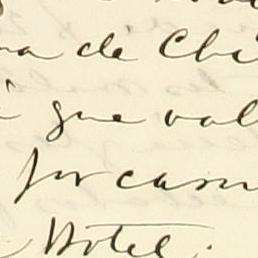 na de Chi
i que val
por casu
Hotel.